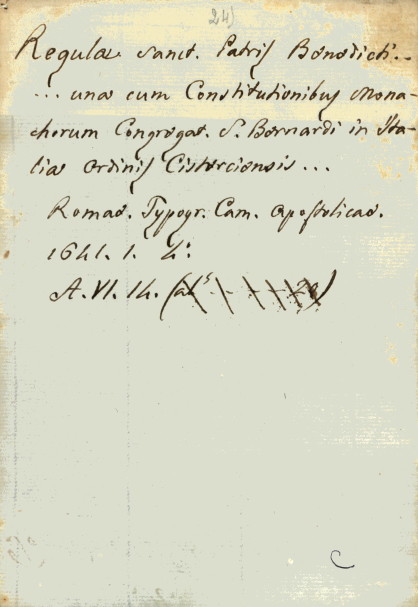 24)
Regulae Sanct. Patris Benedicti...
... una cum Constitutionibus Mona-
chorum Congregat. S. Bernardi in Ita-
lia Ordinis Cisterciensis...
Romae. Typogr. Cam. Apostolicae.
1641. 1. 4:
A. VI. 14.
C